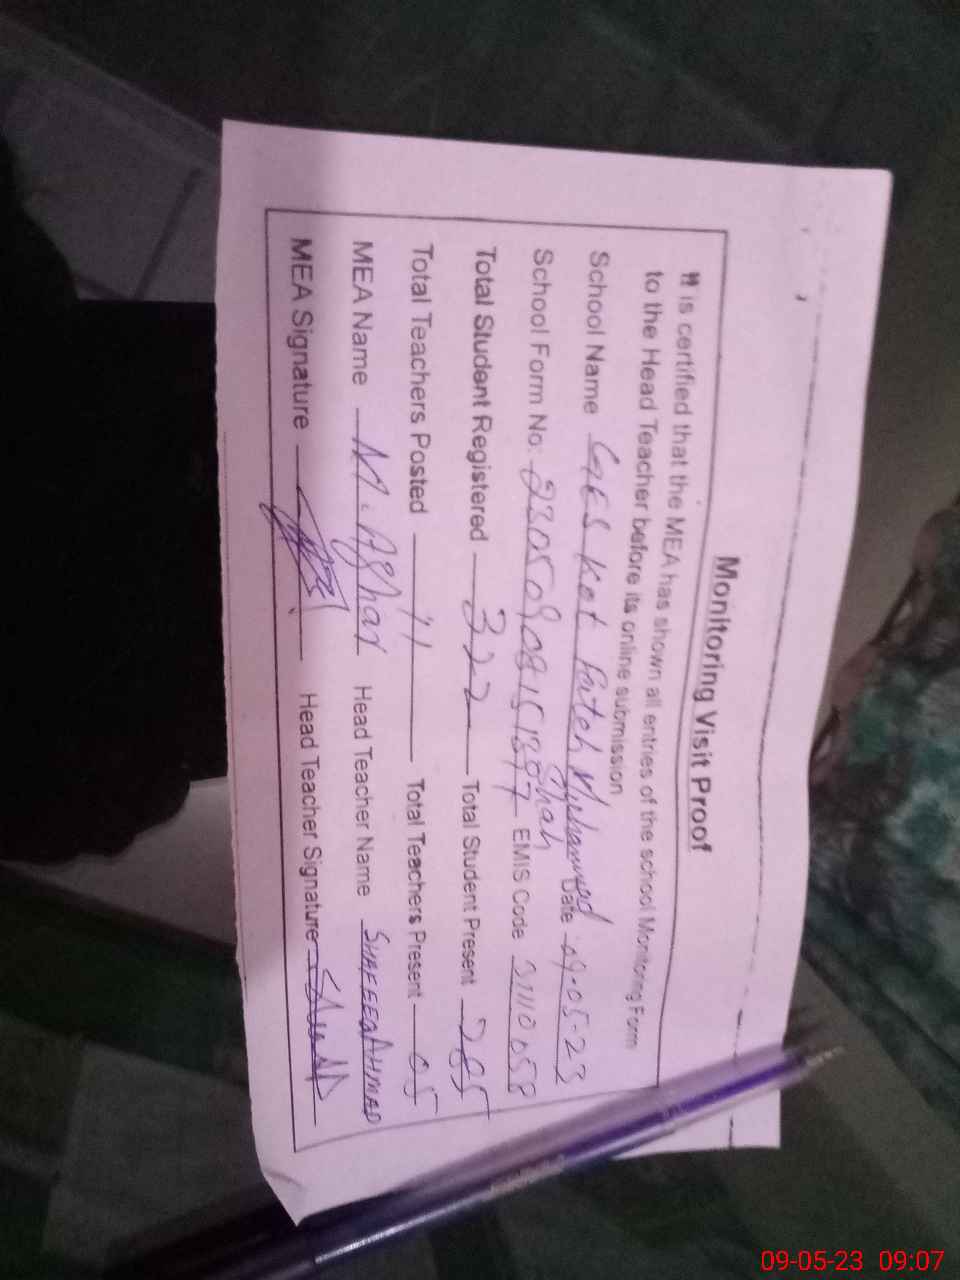 Monitoring Visit Proof
It is certified that the MEA has shown all entries of the school Monitoring Form
to the Head Teacher before its online submission
School Name GES Kot Fateh Muhammad Shah Date 09-05-23
School Form No: EMIS Code 31110058
Total Student Registered 322 Total Student Present 265
Total Teachers Posted 11 Total Teachers Present 05
MEA Name M. Asghar Head Teacher Name SHAFEEQ AHMAD
MEA Signature Head Teacher Signature
09-05-23 09:07